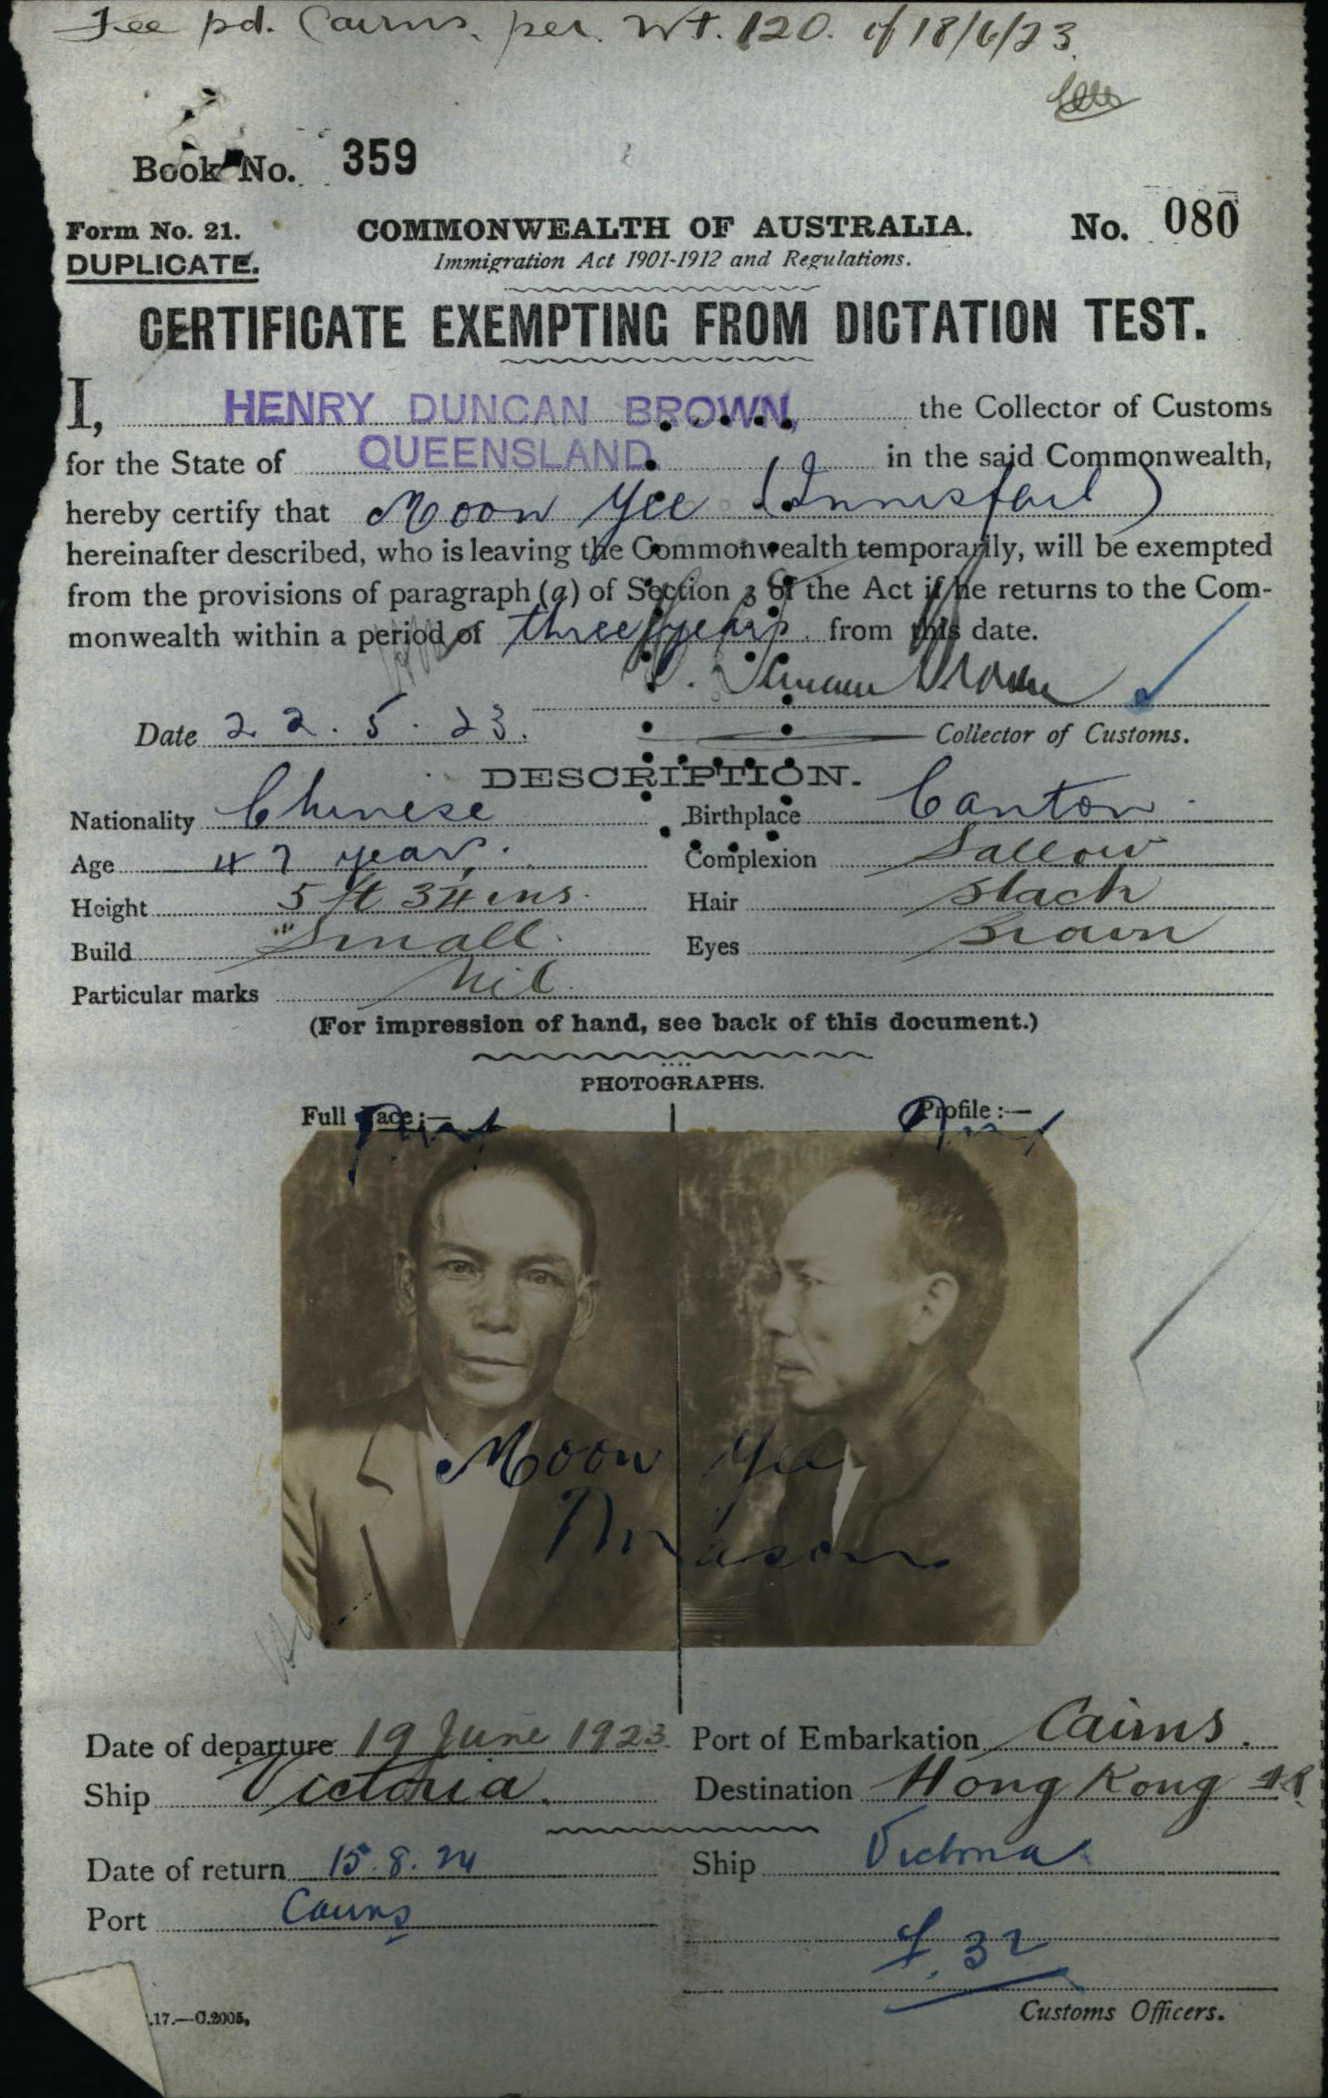 Fee pd. Cairns. per. Wt. 120. of 18/6/23.
Book No. 359
Form No. 21. COMMONWEALTH OF AUSTRALIA. No. 080
DUPLICATE. Immigration Act 1901-1912 and Regulations.
CERTIFICATE EXEMPTING FROM DICTATION TEST.
I, HENRY DUNCAN BROWN, the Collector of Customs
for the State of QUEENSLAND. in the said Commonwealth,
hereby certify that Moon Yee (Innisfail)
hereinafter described, who is leaving the Commonwealth temporarily, will be exempted
from the provisions of paragraph (a) of Section 3 of the Act if he returns to the Com-
monwealth within a period of three years from this date.
Duncan Brown
Date 22.5.23. Collector of Customs.
DESCRIPTION.
Nationality Chinese Birthplace Canton.
Age 47 years. Complexion Sallow
Height 5 ft 3¾ ins. Hair Black
Build Small. Eyes Brown
Particular marks Nil
(For impression of hand, see back of this document.)
PHOTOGRAPHS.
Full Face:— Profile:—
Moon Yee
Date of departure 19 June 1923 Port of Embarkation Cairns.
Ship Victoria. Destination Hong Kong
Date of return 15.8.24 Ship Victoria
Port Cairns
32
Customs Officers.
.17.—C.2005.